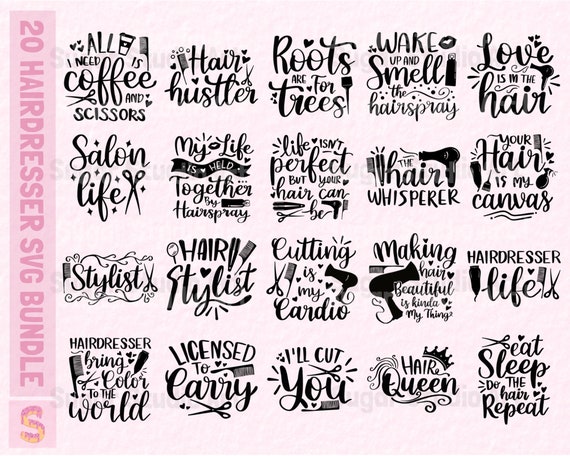 20 HAIRDRESSER SVG BUNDLE
S
ALL
I NEED IS
coffee
AND
SCISSORS
Hair
hustler
Roots
ARE For
trees!
WAKE
UP AND
Smell
the
hairspray
Love
IS IN THE
hair
Salon
life
My Life
IS HELD
Together
By
Hairspray
life ISN'T
perfect
BUT YOUR
hair can
be
THE
hair
WHISPERER
YOUR
Hair
IS MY
canvas
Stylist
HAIR
Stylist
Cutting
is
my
Cardio
Making
hair
Beautiful
is kinda
My Thing?
HAIRDRESSER
life
HAIRDRESSER
bring
Color
TO THE
world
LICENSED
To
Carry
I'LL CUT
You
HAIR
Queen
eat
Sleep
DO THE
hair
Repeat